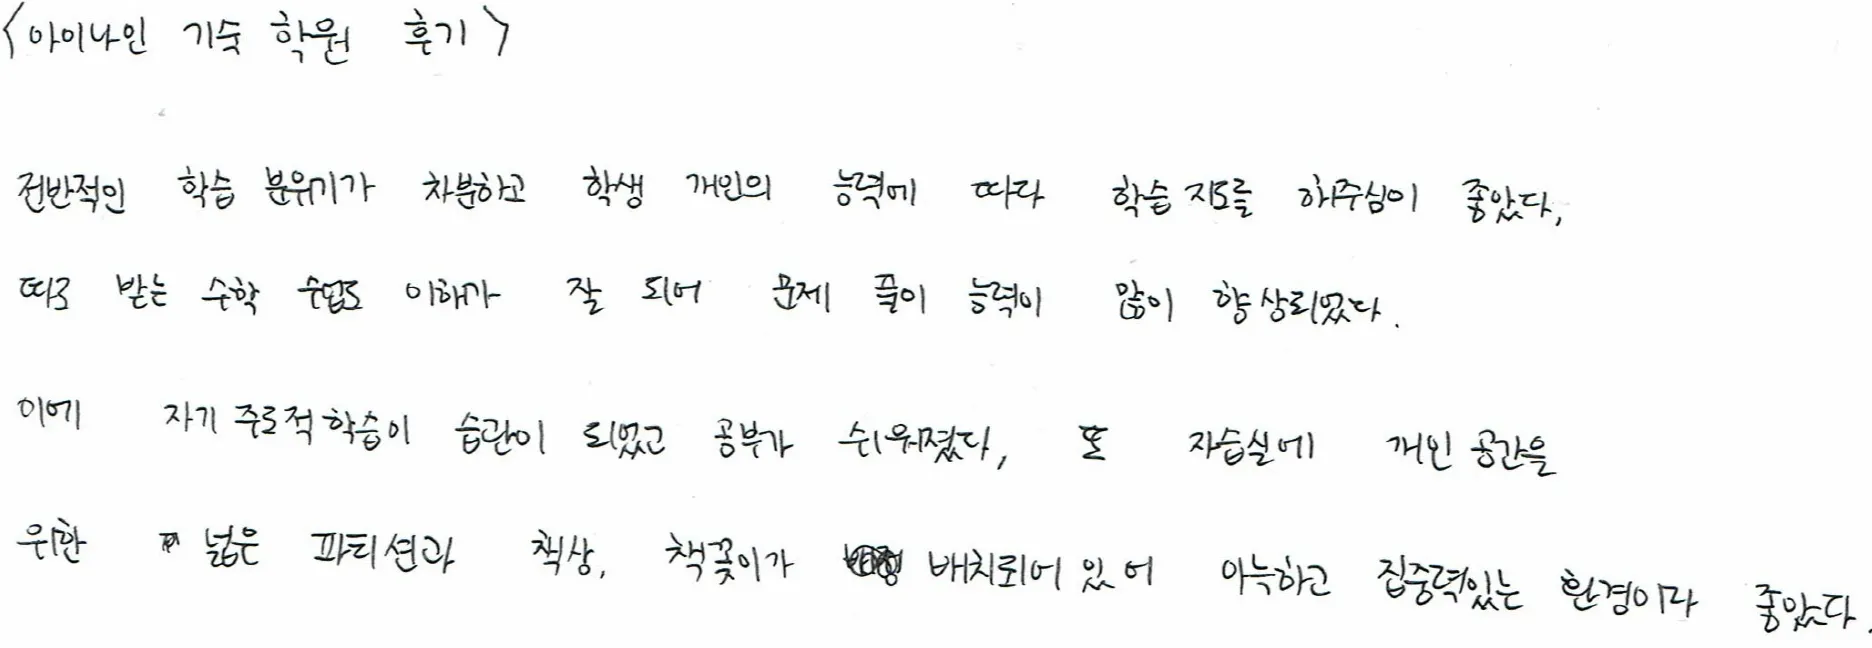 <아이나인 기숙 학원 후기>
전반적인 학습 분위기가 차분하고 학생 개인의 능력에 따라 학습 지도를 해주심이 좋았다,
따로 받는 수학 수업도 이해가 잘 되어 문제 풀이 능력이 많이 향상되었다.
이에 자기 주도적 학습이 습관이 되었고 공부가 쉬워졌다, 또 자습실에 개인 공간을
위한 넓은 파티션과 책상, 책꽂이가 배치되어 있어 아늑하고 집중력있는 환경이라 좋았다.